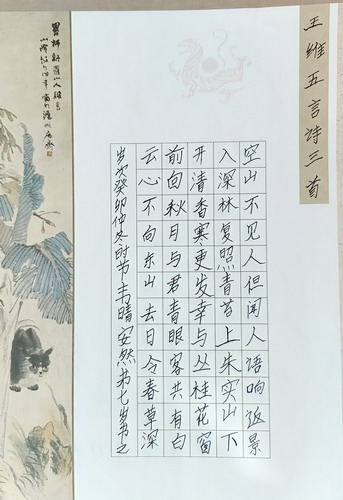 王维五言诗三首
空山不见人但闻人语响返景
入深林复照青苔上朱实山下
开清香寒更发幸与丛桂花窗
前向秋月与君青眼客共有白
云心不向东山去日令春草深
岁次癸卯仲冬时节韦晴安然七岁书之